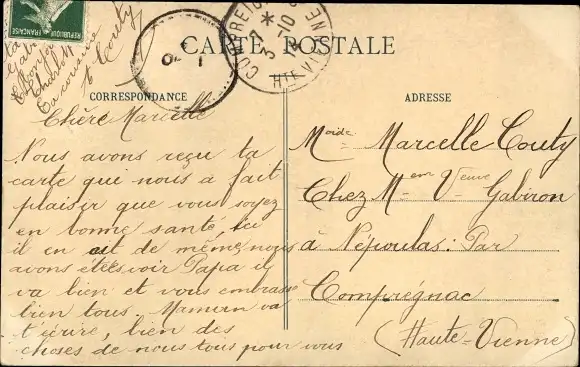 CARTE POSTALE
CORRESPONDANCE
Chère Marcelle
Nous avons reçu ta
carte qui nous à fait
plaisir que vous soyez
en bonne santé ici
il en est de même nous
avons étés voir Papa il
va bien et vous embrasse
bien tous. Maman va
t'écrire, bien des
choses de nous tous pour vous
ta
cousine
t Couty
ADRESSE
Moide Marcelle Couty
Chez Mem Veuve Gabiron
à Népoulas: Par
Compreignac
(Haute-Vienne)
HTE VIENNE